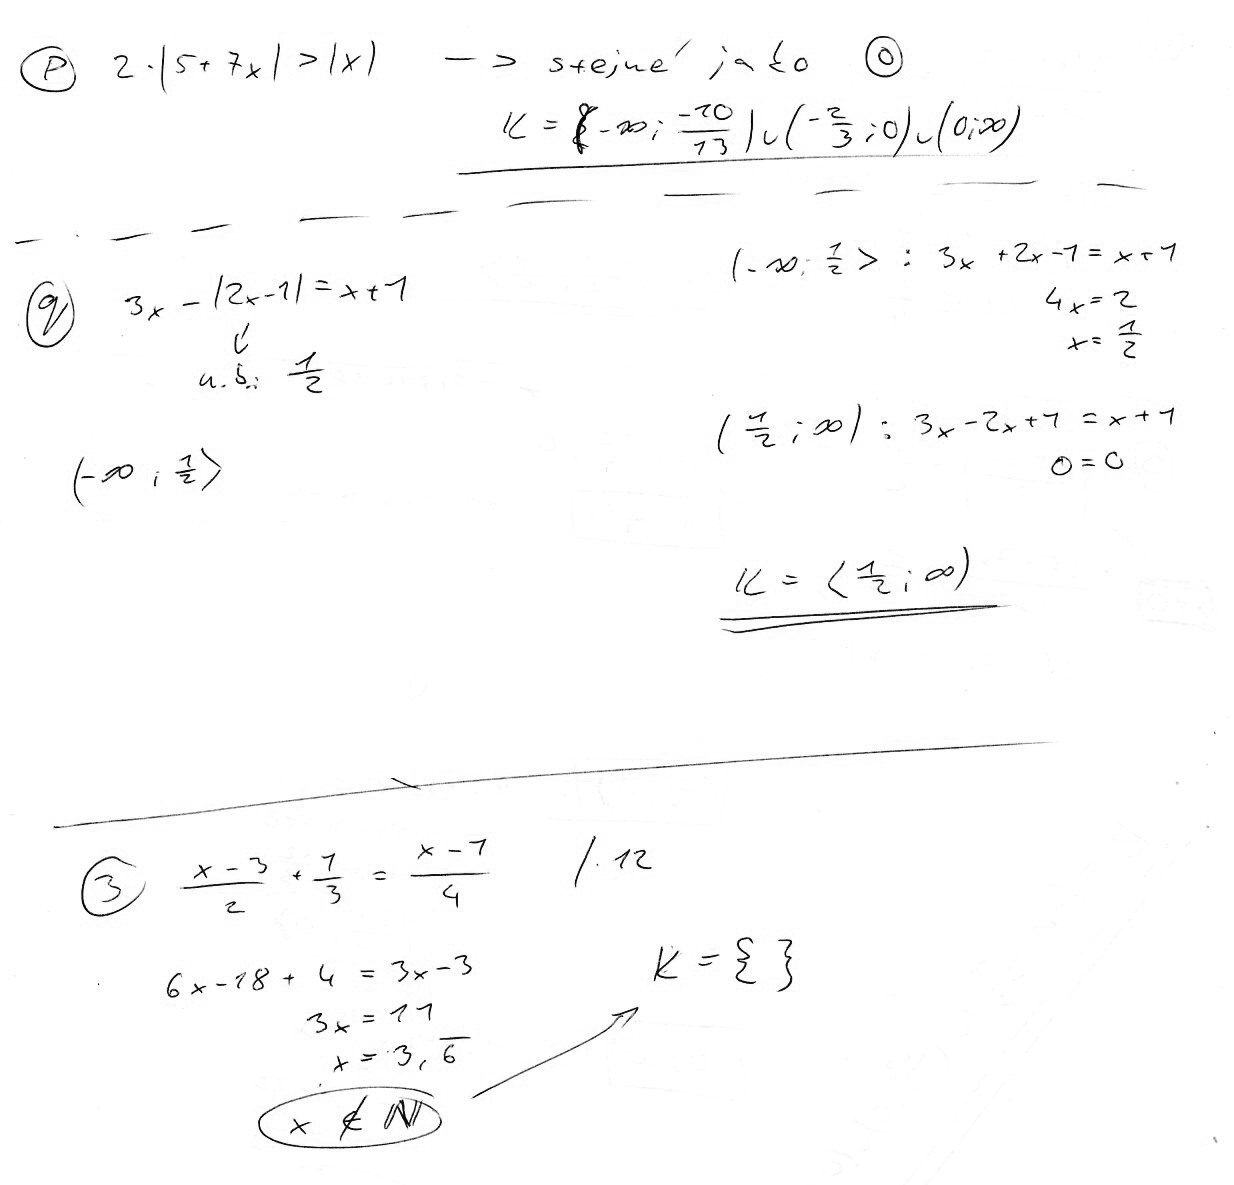 p) 2·|5+7x| > |x| –> stejné jako o)
K = (-∞; -10/13) ∪ (-2/3; 0) ∪ (0; ∞)
q) 3x - |2x-1| = x+1
n.b.: 1/2
(-∞; 1/2>
(-∞; 1/2> : 3x +2x-1 = x+1
4x = 2
x = 1/2
(1/2; ∞) : 3x-2x+1 = x+1
0 = 0
K = <1/2; ∞)
3) (x-3)/2 + 1/3 = (x-1)/4 /·12
6x-18 + 4 = 3x-3
3x = 11
x = 3,6̅
x ∉ N
K = { }